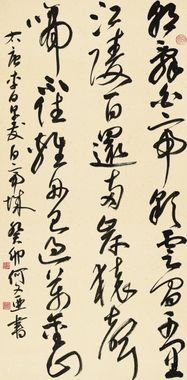 朝辭白帝彩雲間千里
江陵一日還兩岸猿聲
啼不住輕舟已過萬重山
大唐李白早發白帝城 癸卯何文書